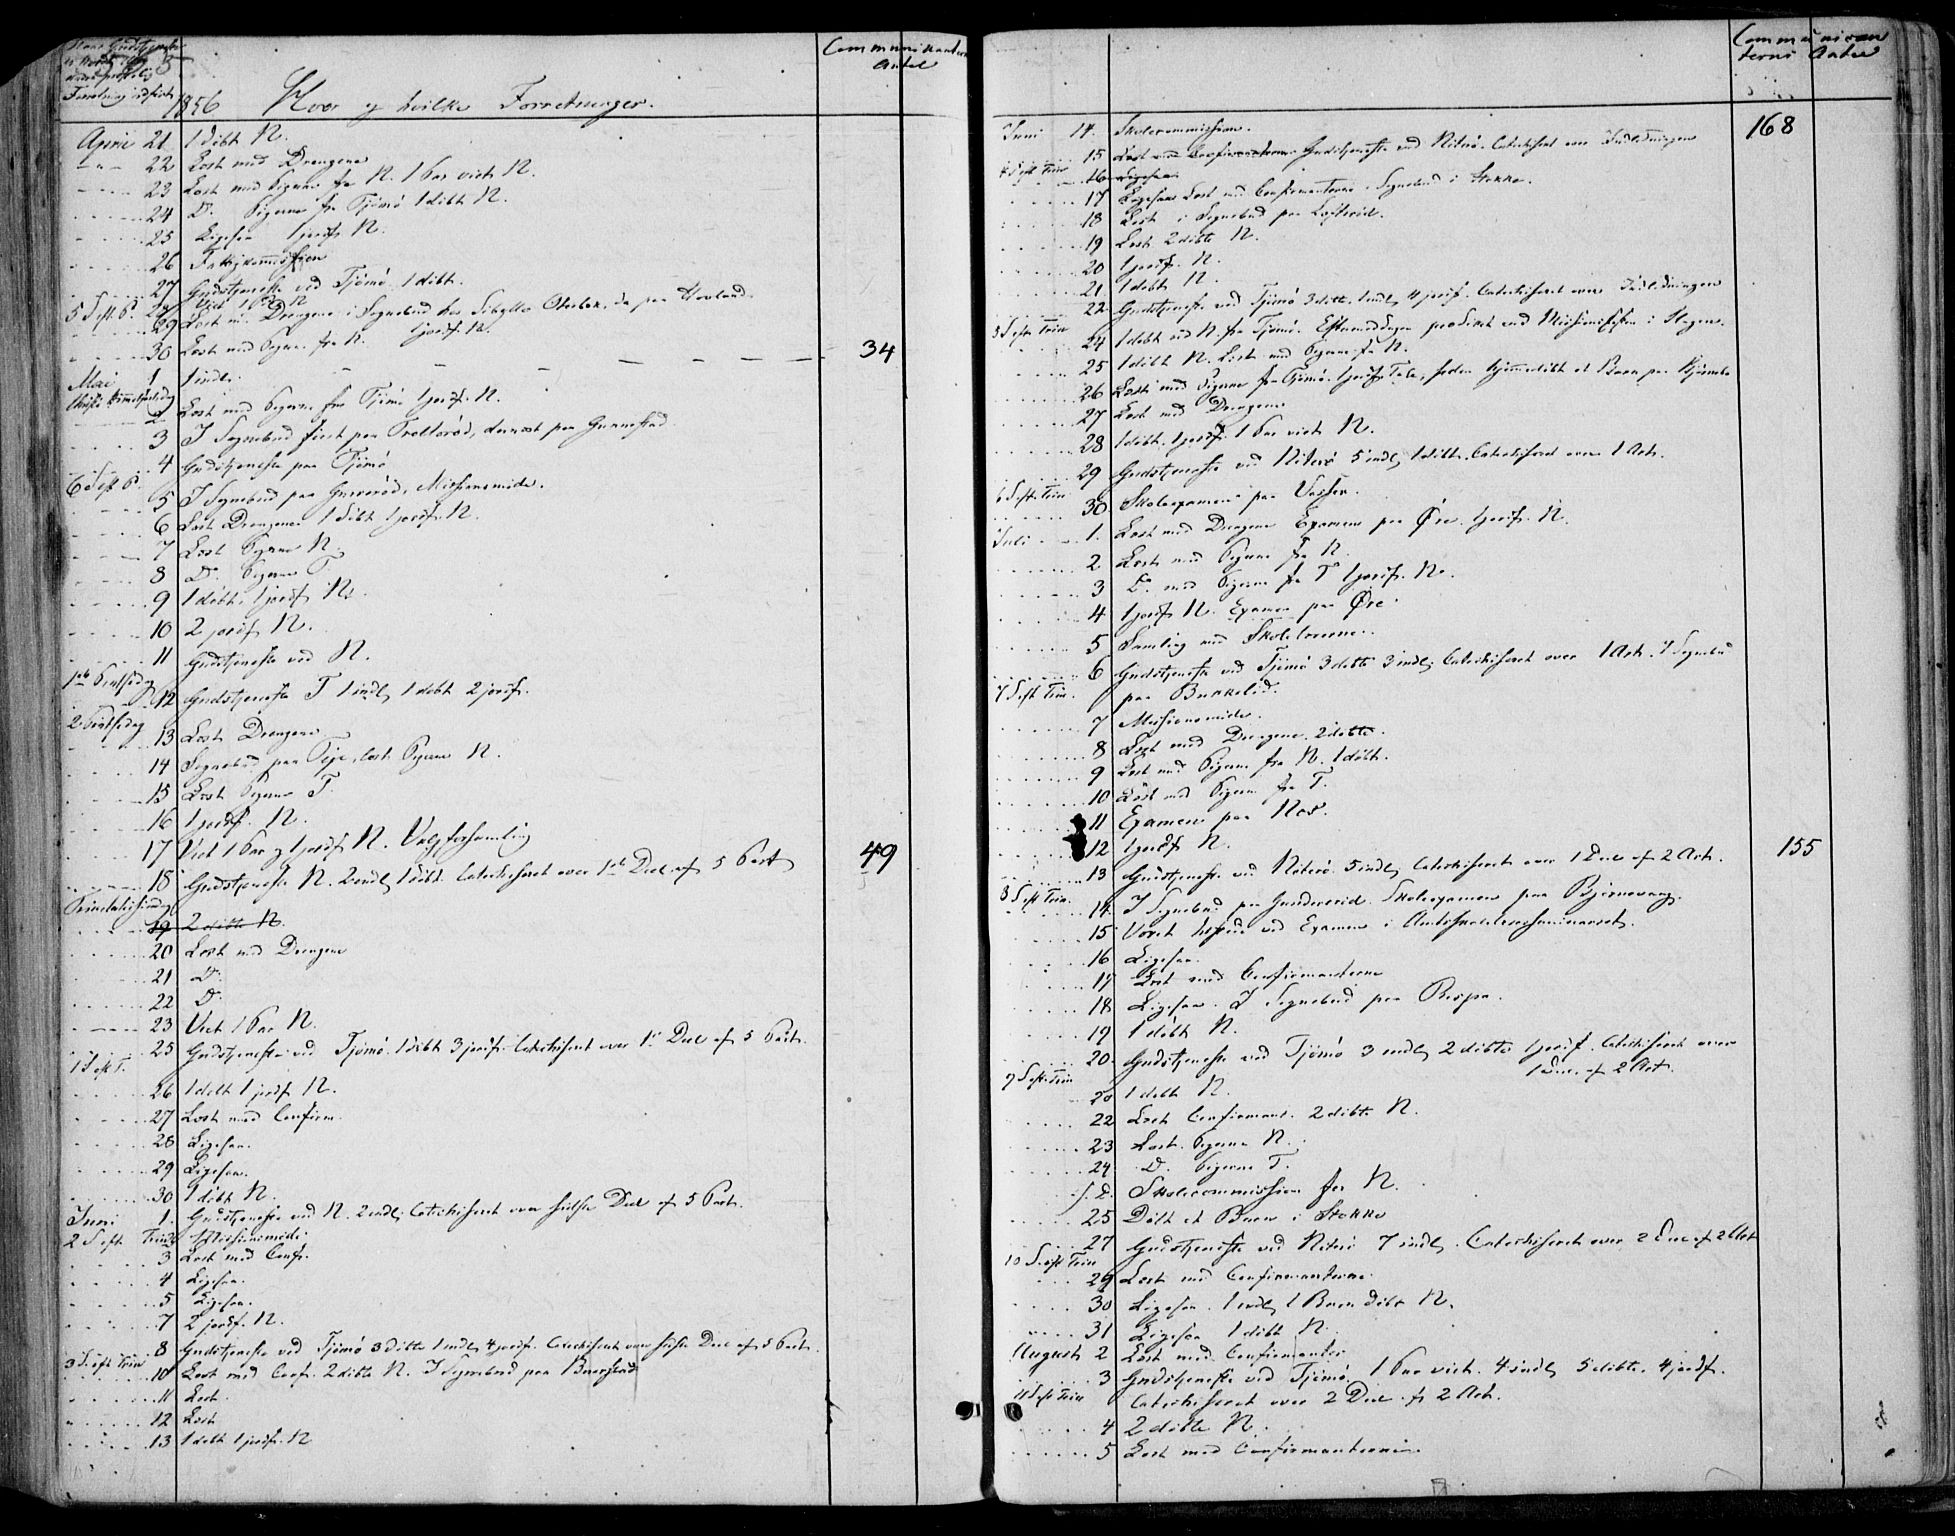 1856 Hvor og hvilke Forretninger.
Communikanternes
Antal
April 21 1 døbt N.
22 Læst med Drengene
23 Læst med Pigerne fra N. 1 Par viet N.
24 D. Pigerne fra Tjömö 1 døbt N.
25 Ligesaa 1 jordf. N.
26 Fattigkommission
27 Gudstjeneste ved Tjömö 1 døbt.
5 S. eft. P. 28 Viet 1 Par N
29 Læst m. Drengene i Sognebud hos
30 Læst med Pigerne fra N. 1 jordf. N.
Mai 1 1 indl. 34
Christi Himmelfartsdag
2 Læst med Pigerne fra Tjömö 1 jordf. N.
3 I Sognebud först paa Trolleröd, dernæst paa Gunnestad
4 Gudstjeneste paa Tjömö
6 S. eft. P.
5 I Sognebud paa Missionsmöde.
6 Læst Drengene 1 døbt 1 jordf. N.
7 Læst Pigerne N.
8 D. Pigerne T
9 1 døbt 1 jordf. N.
10 2 jordf. N.
11 Gudstjeneste ved N.
1ste Pintsedag
12 Gudstjeneste T 1 indl. 1 døbt 2 jordf.
2 Pintsedag
13 Læst Drengene
14 Sognebud paa Teje, læst Pigerne N.
15 Læst Pigerne T.
16 1 jordf. N.
17 Viet 1 Par og 1 jordf. N. Valgforsamling
18 Gudstjeneste N. 2 indl. 1 døbt. Catechiseret over 1ste Deel af 5 Part 49
Trinitatissöndag
19 2 døbte N.
20 Læst med Drengene
21 D.
22 D.
23 Viet 1 Par N.
25 Gudstjeneste ved Tjömö 1 døbt 3 jordf. Catechiseret over 1. Deel af 5 Part.
1 S. eft. T.
26 1 døbt 1 jordf. N.
27 Læst med Confirm.
28 Ligesaa.
29 Ligesaa.
30 1 døbt N.
Juni 1. Gudstjeneste ved N. 2 indl. Catechiseret over sidste Deel af 5 Part.
2 S. eft. Trin 2 Missionsmöde.
3 Læst med Conf.
4 Ligesaa.
5 Ligesaa.
7 2 jordf. N.
8 Gudstjeneste ved Tjömö 3 døbte 1 indl. 4 jordf. Catechiseret over sidste Deel af 5 Part.
3 S. eft. Trin
10 Læst med Conf. 2 døbte N. I Sognebud paa
11 Læst.
12 Læst
13 1 døbt 1 jordf. N
Communicanternes Antal
Juni 14. Skolecommission. 168
15 Gudstjeneste ved Nöterö. Catechiseret over Indledningen
4 S. eft. Trin 16 Ligesaa
17 Ligesaa Læst med Confirmanterne. Sognebud i Stokke.
18 Læst i Sognebud paa
19 Læst 2 døbte N.
20 1 jordf. N.
21 1 døbt N.
22 Gudstjeneste ved Tjömö 3 døbte 1 indl. 4 jordf. Catechiseret over Indledningen
5 S. eft. Trin
24 1 døbt ved N. fra Tjömö. Eftermiddagen prædiket ved Missionsfesten i Slagen.
25 1 døbt N. Læst med Pigerne fra N.
26 Læst med Pigerne fra Tjömö. 1 jordf. Tale, siden hjemmedöbt et Barn paa
27 Læst med Drengene
28 1 døbt 1 jordf. 1 Par viet N.
29 Gudstjeneste ved Nöterö 5 indl. 1 døbt. Catechiseret over 1 Art.
6 S. eft. Trin
30 Skoleexamen paa Vasser.
Juli 1. Læst med Drengene Examen paa Øre. 1 jordf. N.
2 Læst med Pigerne fra N.
3 D. med Pigerne fra T. 1 jordf. N.
4 1 jordf. N. Examen paa Øre.
5 Samling med Skolelærerne.
6 Gudstjeneste ved Tjömö 3 døbte 3 indl. Catechiseret over 1 Art. I Sognebud
7 S. eft. Trin. paa
7 Missionsmöde.
8 Læst med Drengene. 2 døbte.
9 Læst med Pigerne fra N. 1 døbt.
10 Læst med Pigerne fra T.
11 Examen paa Næs.
12 1 jordf. N. 155
13 Gudstjeneste ved Nöterö 5 indl. Catechiseret over 1 Deel af 2 Art.
8 S. eft. Trin.
14. I Sognebud paa Skoleexamen paa
15 Været tilstede ved Examen i Amtsskolelærerseminariet.
16 Ligesaa.
17 Læst med Confirmanterne
18 Ligesaa. I Sognebud paa
19 1 døbt N.
20. Gudstjeneste ved Tjömö 3 indl. 2 døbte 1 jordf. Catechiseret over
1 Deel af 2 Art.
9 S. eft. Trin
20 1 døbt N.
22 Læst Confirmant. 2 døbte N.
23 Læst Pigerne N.
24 D. Pigerne T.
s. D. Skolecommission for N.
25 Döbt et Barn i Stokke
27 Gudstjeneste ved Nöterö 7 indl. Catechiseret over 2 Deel af 2 Art
10 S. eft. Trin
29 Læst med Confirmanterne
30 Ligesaa. 1 indl. 1 Barn døbt N.
31 Ligesaa 1 døbt N.
August 2 Læst med Confirmanter
3 Gudstjeneste ved Tjömö. 1 Par viet. 4 indl. 5 døbte. 4 jordf.
11 S. eft. Trin Catechiseret over 2 Deel af 2 Art.
4 2 døbte N.
5 Læst med Confirmanterne.